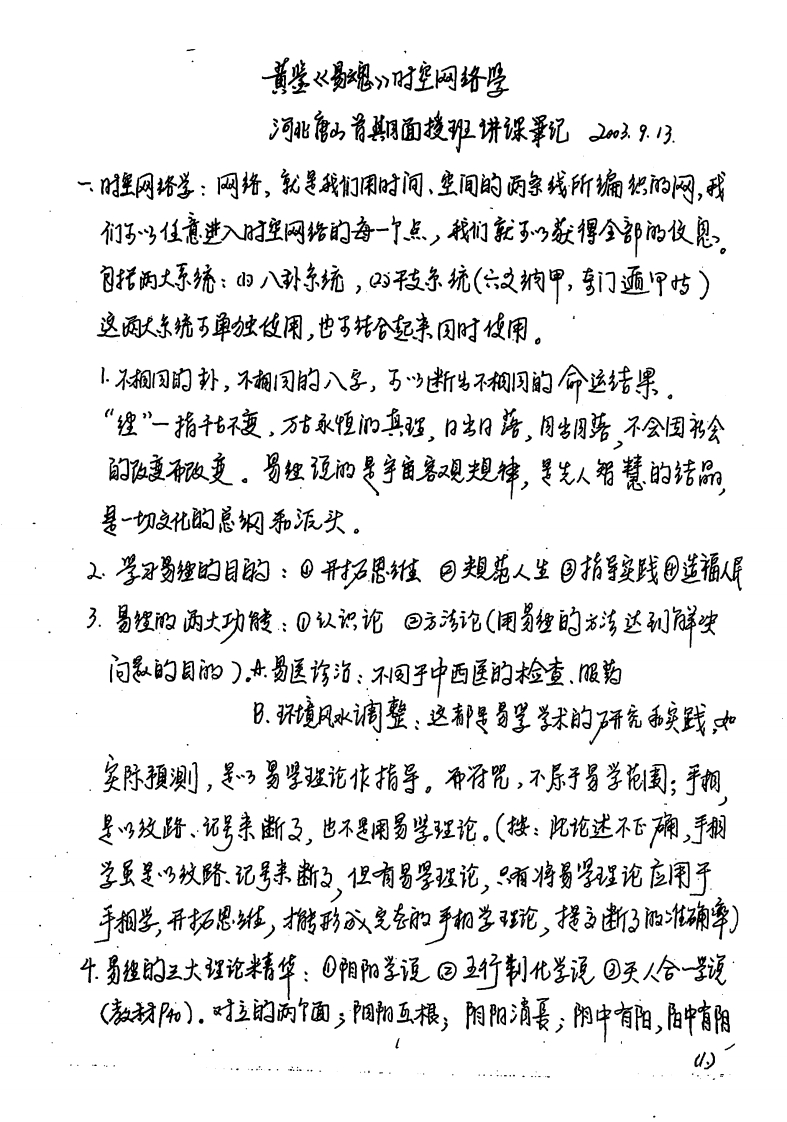 黄鉴《易魂》时空网络学
河北唐山首期面授班讲课笔记 2003.9.13.
一.时空网络学:网络,就是我们用时间、空间的两条线所编织的网,我
们可以任意进入时空网络的每一个点,我们就可以获得全部的信息。
包括两大系统:(1)八卦系统,(2)干支系统(六爻纳甲,奇门遁甲等)
这两大系统可单独使用,也可结合起来同时使用。
1.不相同的卦,不相同的八字,可以断出不相同的命运结果。
“经”一指千古不变,万古永恒的真理,日出日落,月出月落,不会因社会
的改变而改变。易经说的是宇宙客观规律,是先人智慧的结晶,
是一切文化的总纲和源头。
2.学习易经的目的:①开拓思维 ②规范人生 ③指导实践④造福人民
3.易经的两大功能:①认识论 ②方法论(用易经的方法达到解决
问题的目的)。A.易医诊治:不同于中西医的检查、服药
B.环境风水调整:这都是易学学术的研究和实践,如
实际预测,是以易学理论作指导。而符咒,不属于易学范围;手相,
是以纹路、记号来断事,也不是用易学理论。(按:此论述不正确,手相
学虽是以纹路、记号来断事,但有易学理论,只有将易学理论应用于
手相学,开拓思维,才能形成完整的手相学理论,提高断事的准确率)
4.易经的三大理论精华:①阴阳学说 ②五行制化学说 ③天人合一学说
(教材P40)。对立的两个面;阴阳互根;阴阳消长;阴中有阳,阳中有阴
(1.)